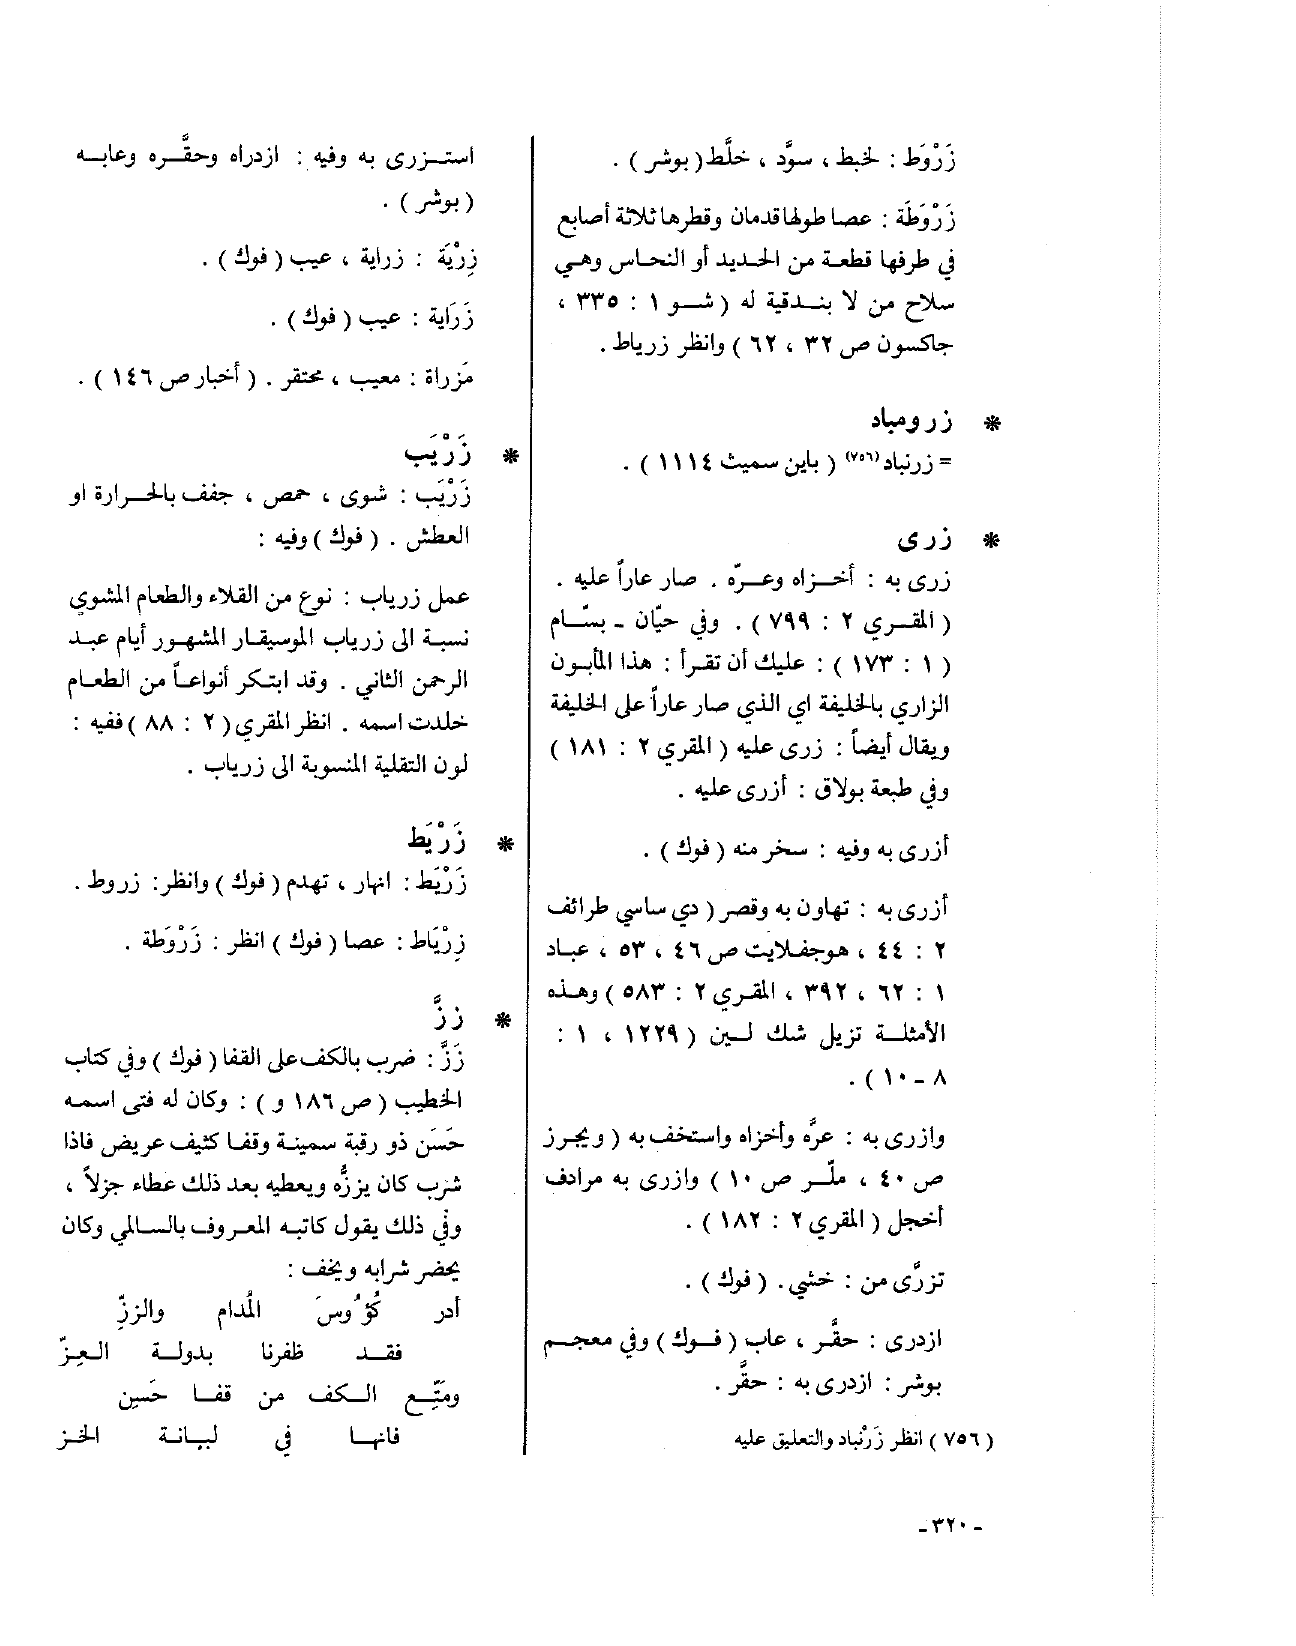 زَرْوَط : لخبط ، سوَّد ، خلَّط ( بوشر ) .
زَرْوَطَة : عصا طولها قدمان وقطرها ثلاثة أصابع
في طرفها قطعة من الحديد أو النحاس وهي
سلاح من لا بندقية له ( شو ١ : ٣٣٥ ،
جاكسون ص ٣٢ ، ٦٢ ) وانظر زرياط .
* زرومباد
= زرنباد (٧٥٦) ( باين سميث ١١١٤ ) .
* زرى
زرى به : أخزاه وعرّه . صار عاراً عليه .
( المقري ٢ : ٧٩٩ ) . وفي حيّان ـ بسّام
( ١ : ١٧٣ ) : عليك أن تقرأ : هذا المأبون
الزاري بالخليفة اي الذي صار عاراً على الخليفة
ويقال أيضاً : زرى عليه ( المقري ٢ : ١٨١ )
وفي طبعة بولاق : أزرى عليه .
أزرى به وفيه : سخر منه ( فوك ) .
أزرى به : تهاون به وقصر ( دي ساسي طرائف
٢ : ٤٤ ، هوجفلايت ص ٤٦ ، ٥٣ ، عباد
١ : ٦٢ ، ٣٩٢ ، المقري ٢ : ٥٨٣ ) وهذه
الأمثلة تزيل شك لين ( ١٢٢٩ ، ١ :
٨ - ١٠ ) .
وازرى به : عرَّه وأخزاه واستخف به ( ويجرز
ص ٤٠ ، ملّر ص ١٠ ) وازرى به مرادف
أخجل ( المقري ٢ : ١٨٢ ) .
تزرَّى من : خشي . ( فوك ) .
ازدرى : حقَّر ، عاب ( فوك ) وفي معجم
بوشر : ازدرى به : حقَّر .
( ٧٥٦ ) انظر زَرْنباد والتعليق عليه
استزرى به وفيه : ازدراه وحقَّره وعابه
( بوشر ) .
زِرْيَة : زراية ، عيب ( فوك ) .
زَرَاية : عيب ( فوك ) .
مَزراة : معيب ، محتقر . ( أخبار ص ١٤٦ ) .
* زَرْيَب
زَرْيَب : شوى ، حمص ، جفف بالحرارة او
العطش . ( فوك ) وفيه :
عمل زرياب : نوع من القلاء والطعام المشوي
نسبة الى زرياب الموسيقار المشهور أيام عبد
الرحمن الثاني . وقد ابتكر أنواعاً من الطعام
خلدت اسمه . انظر المقري ( ٢ : ٨٨ ) ففيه :
لون التقلية المنسوبة الى زرياب .
* زَرْيَط
زَرْيَط : انهار ، تهدم ( فوك ) وانظر : زروط .
زِرْيَاط : عصا ( فوك ) انظر : زَرْوَطَة .
* زَزَّ
زَزَّ : ضرب بالكف على القفا ( فوك ) وفي كتاب
الخطيب ( ص ١٨٦ و ) : وكان له فتى اسمه
حَسَن ذو رقبة سمينة وقفا كثيف عريض فاذا
شرب كان يززُّه ويعطيه بعد ذلك عطاء جزلاً ،
وفي ذلك يقول كاتبه المعروف بالسالمي وكان
يحضر شرابه ويخف :
أدر كُؤوسَ المُدام والززِّ
فقد ظفرنا بدولة العزّ
ومَتِّع الكف من قفا حَسَن
فانها في ليانة الخز
- ٣٢٠ -